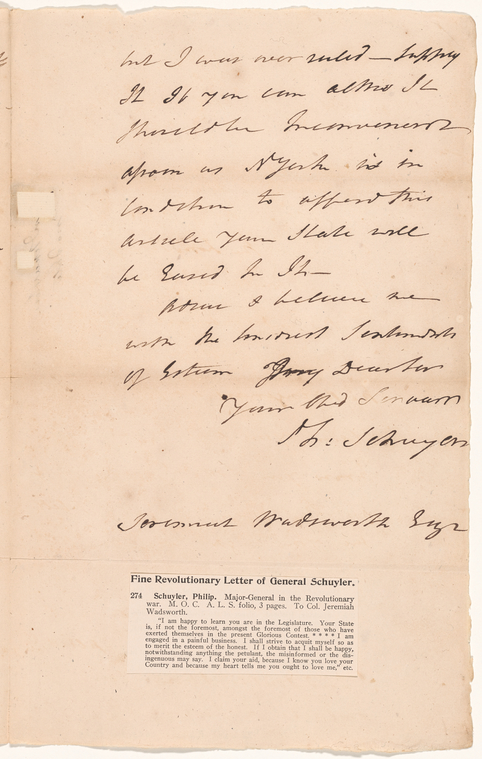 but I was over ruled — supply
It If you can altho It
should be Inconvenient
as soon as N York is in
Condition to afford this
article your State will
be Eased In It —
Adieu & believe me
with the sincerest Sentiments
of Esteem My Dear Sir
Your Obd Servant
Ph: Schuyler
Jeremiah Wadsworth Esqr
Fine Revolutionary Letter of General Schuyler.
274 Schuyler, Philip. Major-General in the Revolutionary
war. M. O. C. A. L. S. folio, 3 pages. To Col. Jeremiah
Wadsworth.
"I am happy to learn you are in the Legislature. Your State
is, if not the foremost, amongst the foremost of those who have
exerted themselves in the present Glorious Contest, * * * * I am
engaged in a painful business. I shall strive to acquit myself so as
to merit the esteem of the honest. If I obtain that I shall be happy,
notwithstanding anything the petulant, the misinformed or the dis-
ingenuous may say. I claim your aid, because I know you love your
Country and because my heart tells me you ought to love me," etc.